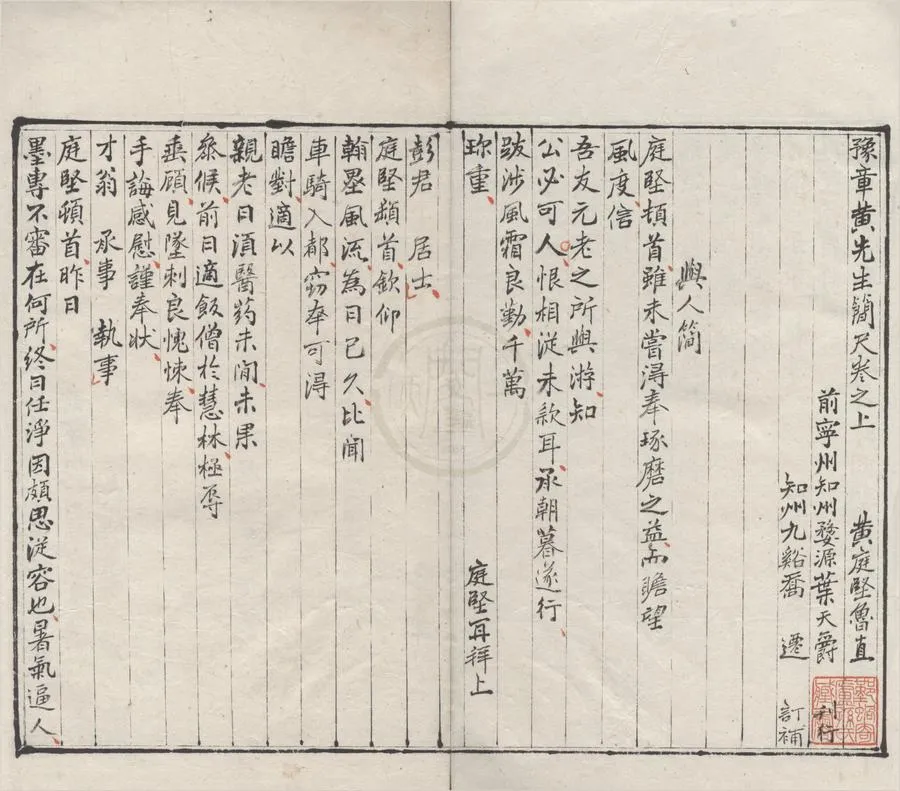 豫章黄先生簡尺卷之上　黄庭堅魯直
前寧州知州婺源葉天爵　刊行
知州九谿喬　遷　訂補
與人簡
庭堅頓首雖未嘗得奉琢磨之益而瞻望
風度信
吾友元老之所與游知
公必可人恨相從未款耳承朝暮遂行
跋涉風霜良勤千萬
珎重　庭堅再拜上
彭君　居士
庭堅頓首欽仰
翰墨風流為日已久比聞
車騎入都窃幸可得
瞻對適以
親老日須醫药未間未果
叅候前日適飯僧於慧林極辱
垂顧見墜刺良愧悚奉
手誨感慰謹奉状
才翁　承事　執事
庭堅頓首昨日
墨專不審在何所終日任淨因頗思從容也暑氣逼人